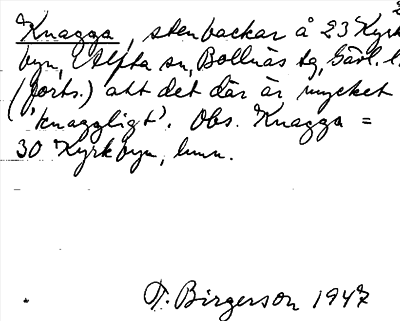 2
Knagga, stenbackar å 23 Kyrk
byn, Alfta sn, Bollnäs tg, Gävl. l.
(forts.) att det där är mycket
'knaggligt'. Obs. Knagga =
30 Kyrkbyn, hmn.
T. Birgerson 1947